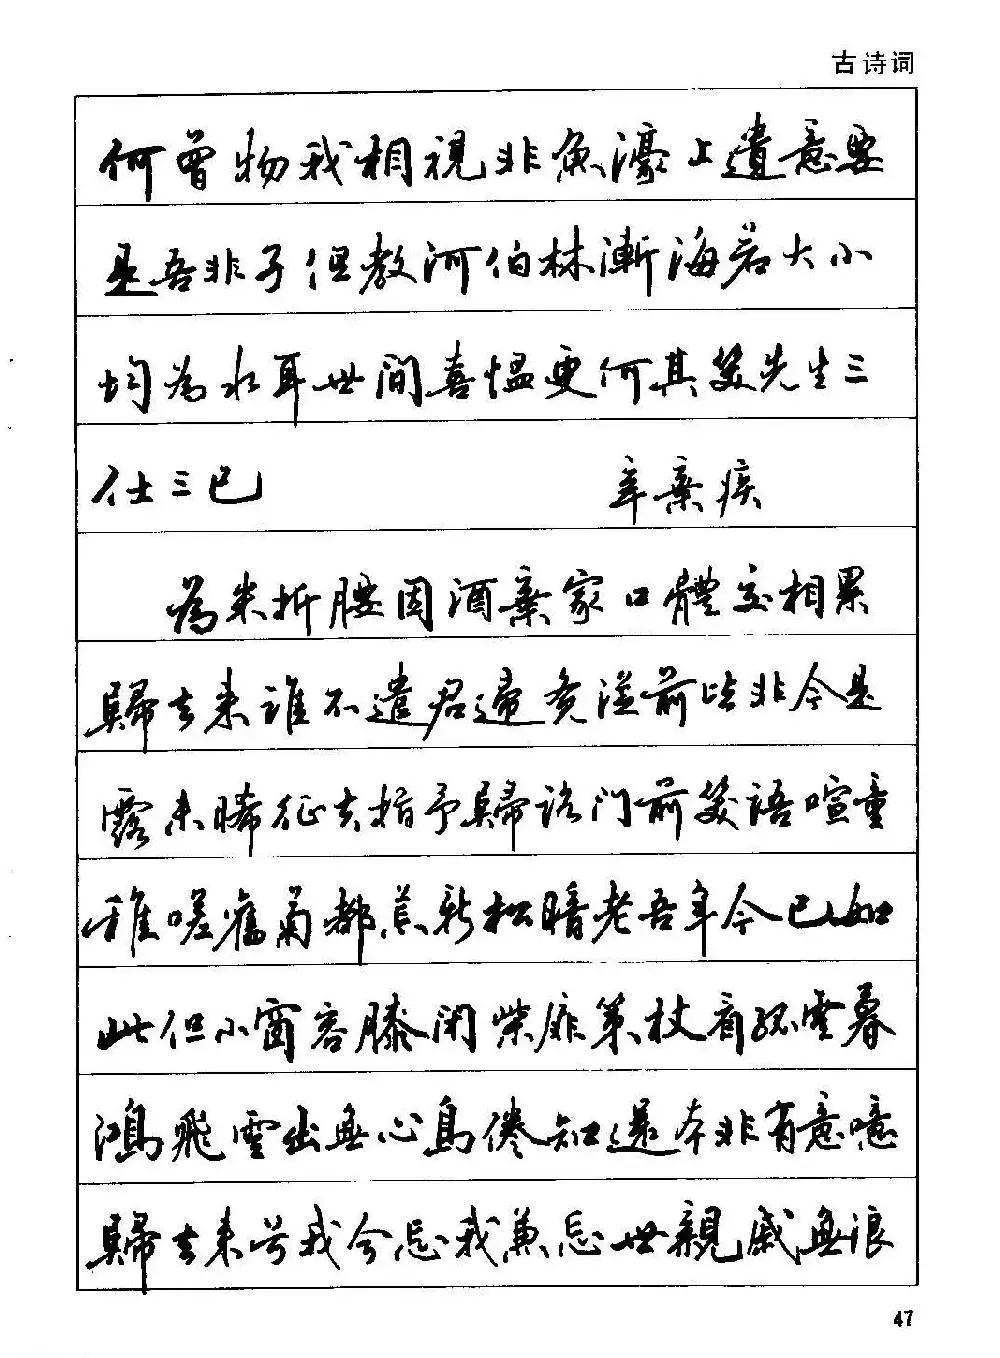 古诗词
何曾物我相視非魚濠上遺意要
是吾非子但教河伯休慚海若大小
均為水耳世間喜愠更何其笑先生三
仕三已
辛棄疾
為米折腰因酒棄家口體交相累
歸去來誰不遣君歸覺從前皆非今是
露未晞征夫指予歸路門前笑語喧童
稚嗟舊菊都荒新松暗老吾年今已如
此但小窗容膝閉柴扉策杖看孤雲暮
鴻飛雲出無心鳥倦知還本非有意噫
歸去來兮我今忘我兼忘世親戚無浪
47